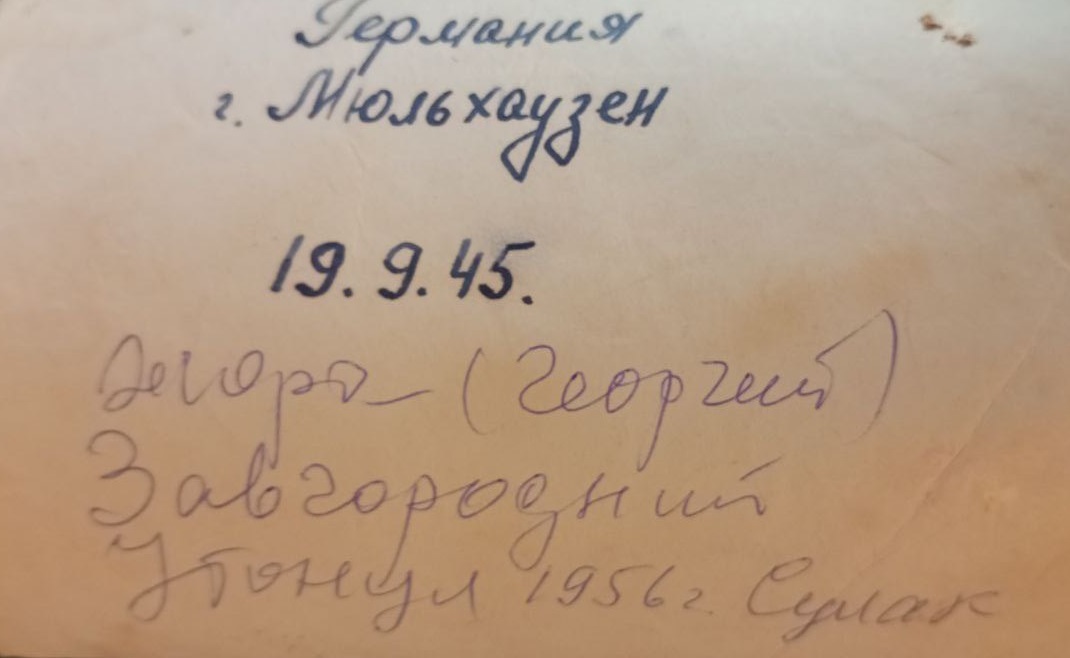 Германия
г. Мюльхаузен
19. 9. 45.
Жора (Георгий)
Завгородний
Утонул 1956 г. Сулак